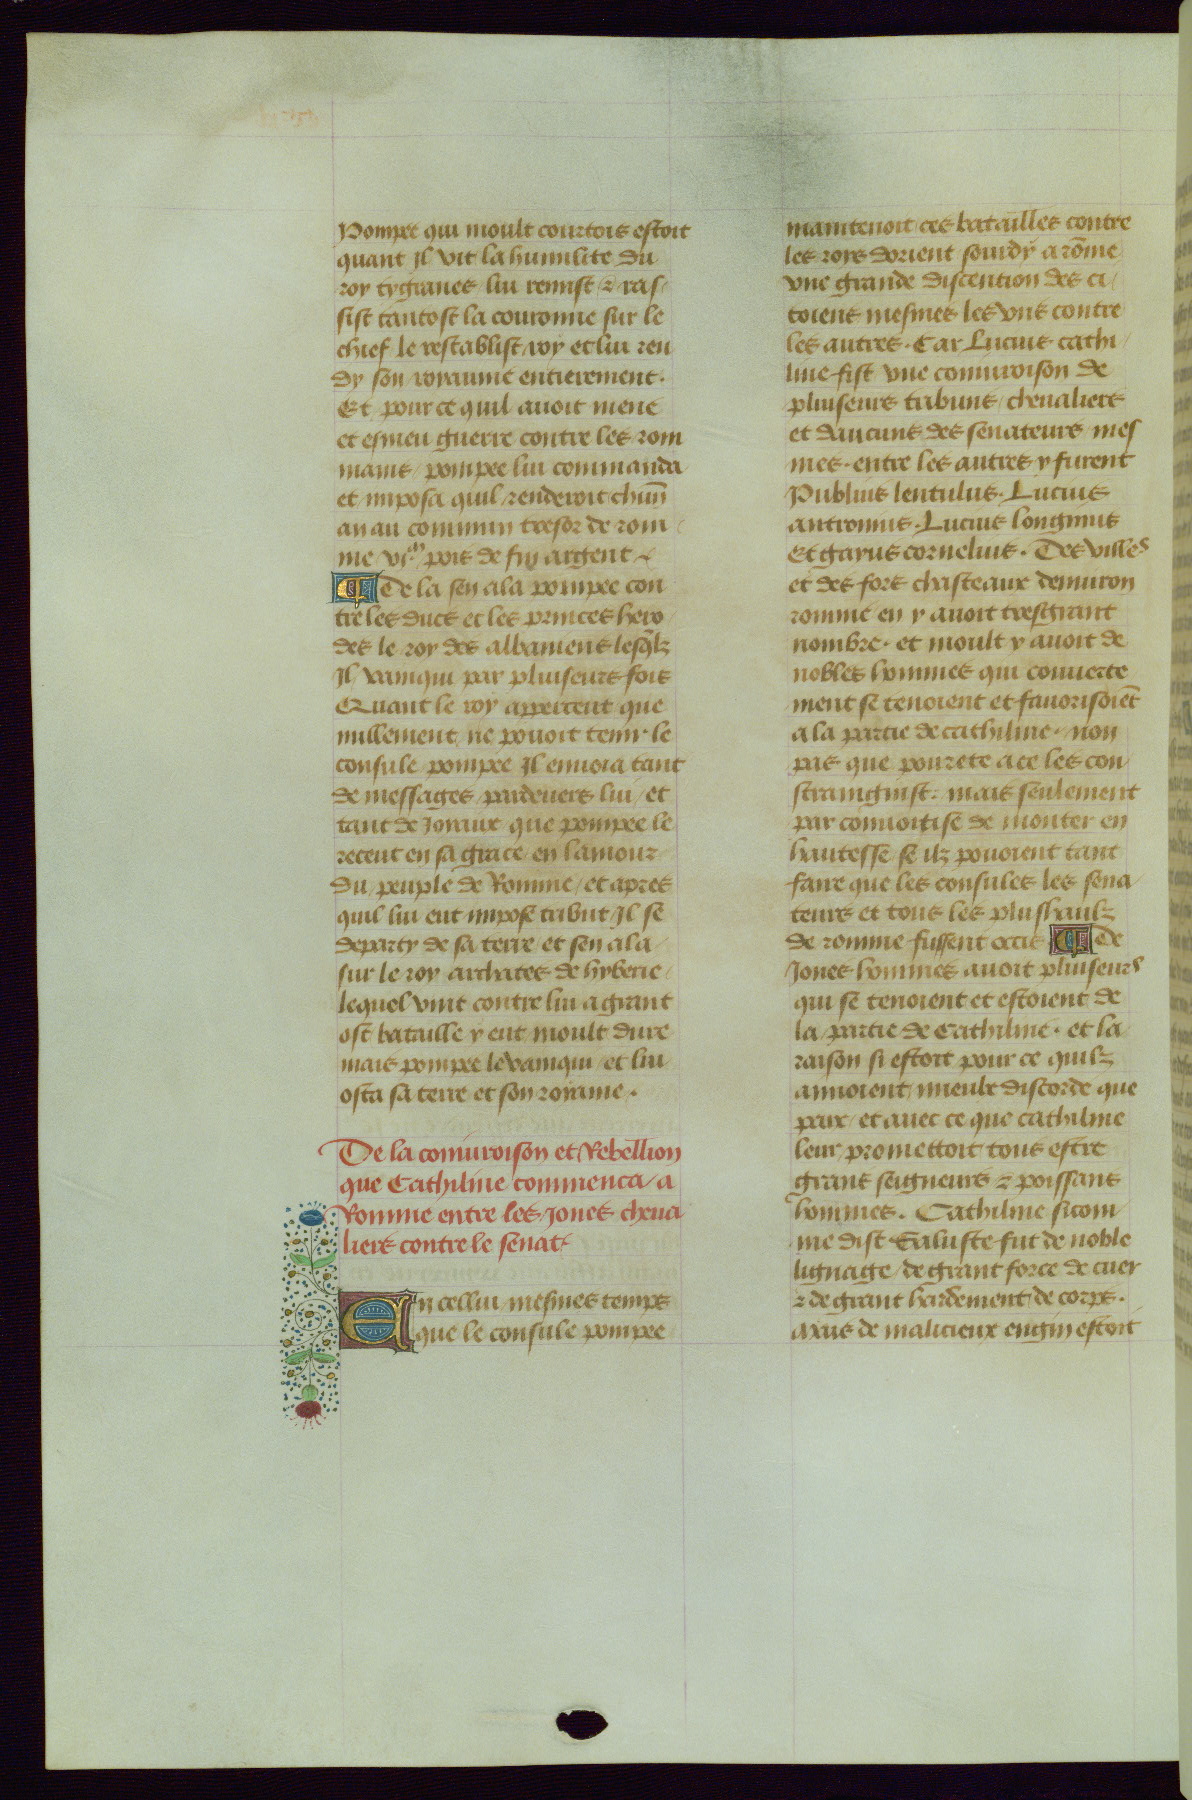 Pompee qui moult courtois estoit
quant Jl vit la humilite du
roy tygranes lui remist & ras-
sist tantost la couronne sur le
chief le restablist roy et lui ren
dy son royaume entierement.
Et pour ce quil auoit mene
et esmeu guerre contre les rom
mains pompee lui commanda
et imposa quil renderoit chūn
an au commun tresor de rom
me vj.m pois de fin argent
De la sen ala pompee con
tre les ducs et les princes hero
des le roy des albaniens lesqlz
Jl vainqui par pluiseurs fois
Quant le roy apperceut que
nullement ne pouoit tenir le
consule pompee Jl enuoia tant
de messages pardeuers lui et
tant de Joiaux que pompee le
receut en sa grace en lamour
du peuple de Romme et apres
quil lui eut impose tribut Jl se
departy de sa terre et sen ala
sur le roy archates de hyberie
lequel vint contre lui a grant
ost bataille y eut moult dure
mais pompee le vainqui et lui
osta sa terre et son royame.
De la coniuroison et Rebellion
que Cathiline commenca a
Romme entre les Jones cheua
liers contre le senat
En cellui mesmes temps
que le consule pompee
maintenoit ces batailles contre
les roys dorient sourdy a rōme
vne grande discention des ci
toiens mesmes les vns contre
les autres. Car Lucius cathi
line fist vne coniuroison de
pluiseurs tribuns cheualiers
et daucuns des senateurs mes
mes. entre les autres y furent
Publius lentulus. Lucius
antronius. Lucius longinus
Et gayus cornelius. Des villes
et des fors chasteaux denuiron
romme en y auoit tresgrant
nombre. et moult y auoit de
nobles hommes qui couuerte
ment se tenoient et fauorisoiēt
a la partie de cathiline. non
pas que pourete a ce les con
straingnist: mais seulement
par conuoitise de monter en
hautesse se ilz pouoient tant
faire que les consules les sena
teurs et tous les plushaulz
de romme fussent occis De
Jones hommes auoit pluiseurs
qui se tenoient et estoient de
la partie de Cathiline. et la
raison si estoit pour ce quilz
amoient mieulx discorde que
paix et auec ce que cathiline
leur promettoit tous estre
grans seigneurs & poissans
hommes. Cathiline sicom
me dist Saluste fut de noble
lignage de grant force de cuer
& de grant hardement de corps.
mais de malicieux engin estoit